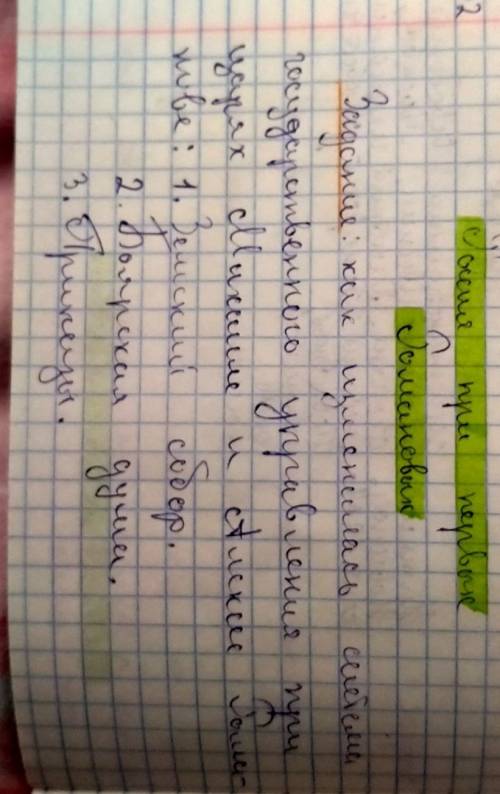 Россия при первых
Романовых.
Задание: как изменилась система
государственного управления при
царях Михаиле и Алексее Рома-
нове: 1. Земский собор.
2. Боярская дума.
3. Приказы.